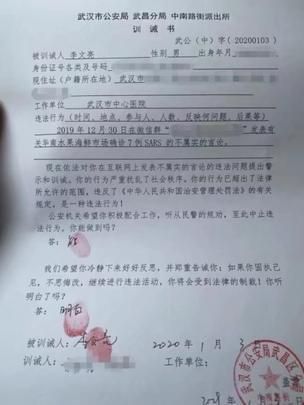 武汉市公安局 武昌分局 中南路街派出所
训诫书
武公(中)字(20200103)
被训诫人 李文亮 性别 男 出生年月
身份证件名称及号码
现住址(户籍所在地) 武汉市
工作单位 武汉市中心医院
违法行为(时间、地点、参与人、人数、反映何问题、后果等)
2019年12月30日在微信群" "发表有
关华南水果海鲜市场确诊7例SARS的不属实的言论。
现在依法对你在互联网上发表不属实的言论的违法问题提出警
示和训诫。你的行为严重扰乱了社会秩序。你的行为已超出了法律
所允许的范围，违反了《中华人民共和国治安管理处罚法》的有关
规定，是一种违法行为！
公安机关希望你积极配合工作，听从民警的规劝，至此中止违
法行为。你能做到吗？
答：能
我们希望你冷静下来好好反思，并郑重告诫你：如果你固执己
见，不思悔改，继续进行违法活动，你将会受到法律的制裁！你听
明白了吗？
答：明白
被训诫人：李文亮 2020年1月3日
训诫人： 工作单位：
武汉市公安局武昌区